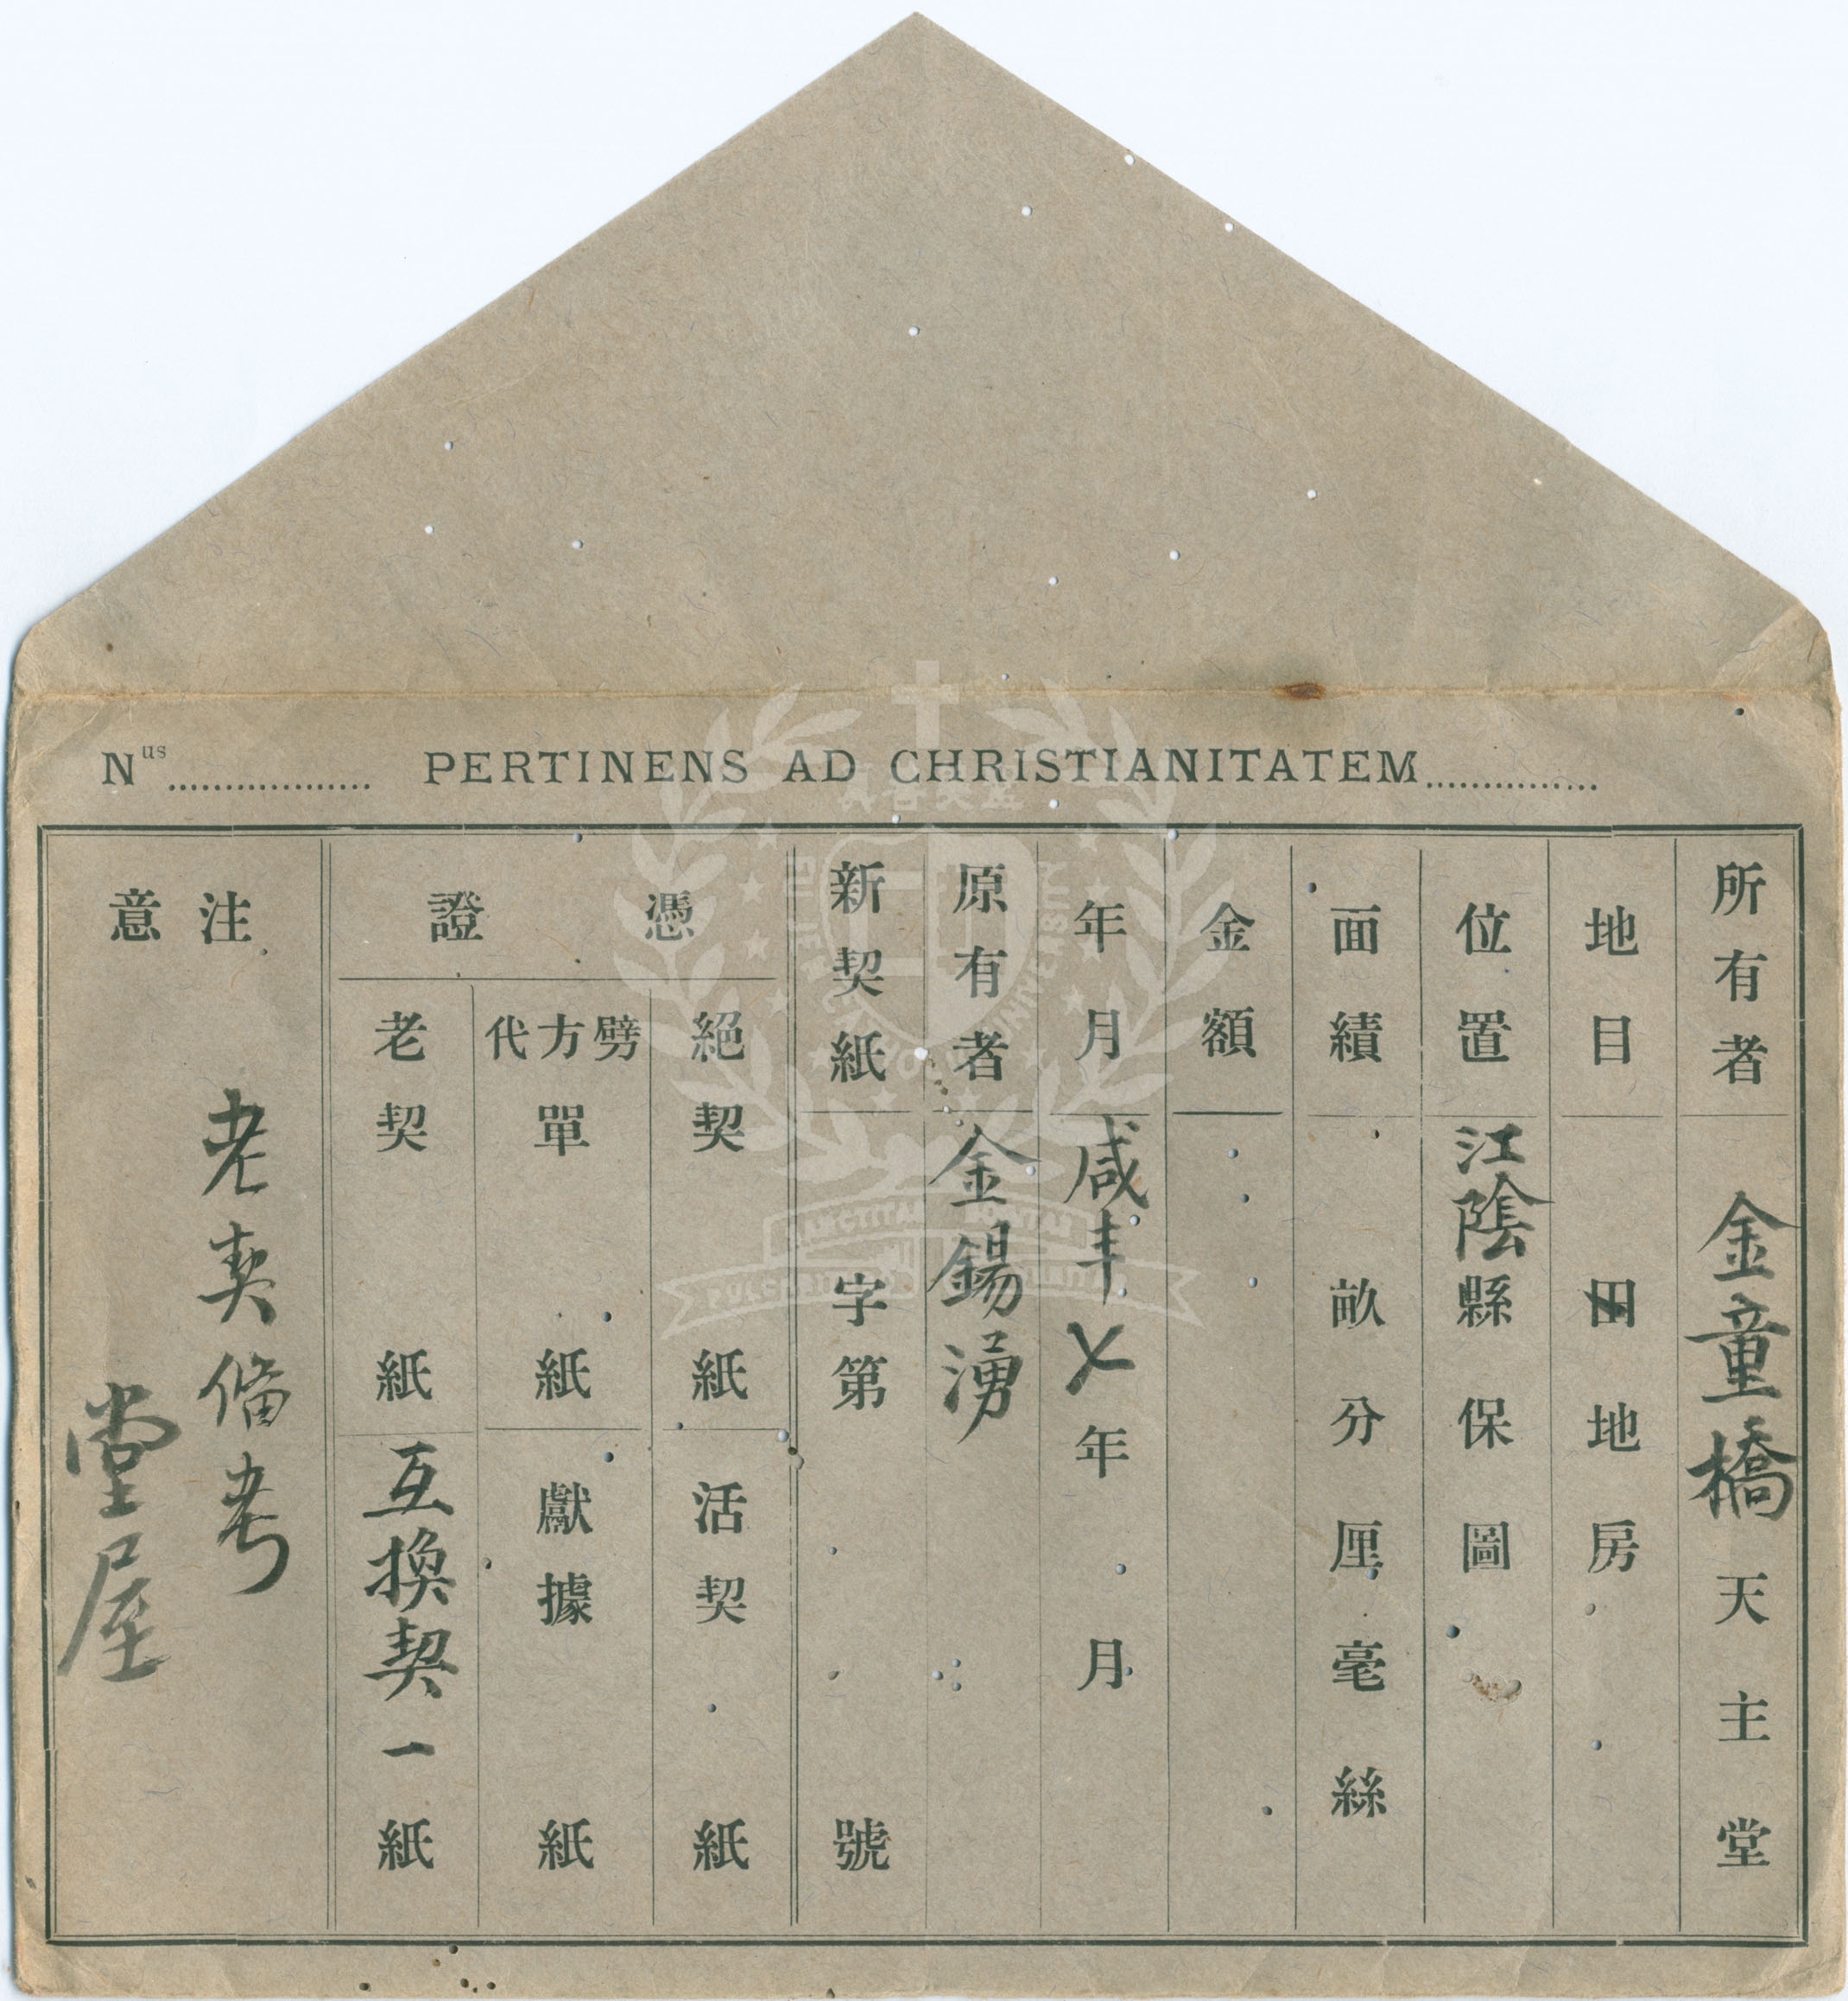 Nus.................. PERTINENS AD CHRISTIANITATEM...............
所有者 金童橋天主堂
地目 田地房
位置 江陰縣保圖
面績 畝分厘毫絲
金額
年月 咸丰〤年月
原有者 金錫湧
新契紙 字第號
憑證
絕契 紙 活契 紙
劈方代單 紙 獻據 紙
老契 紙 互換契一紙
注意
老契俻考
堂屋